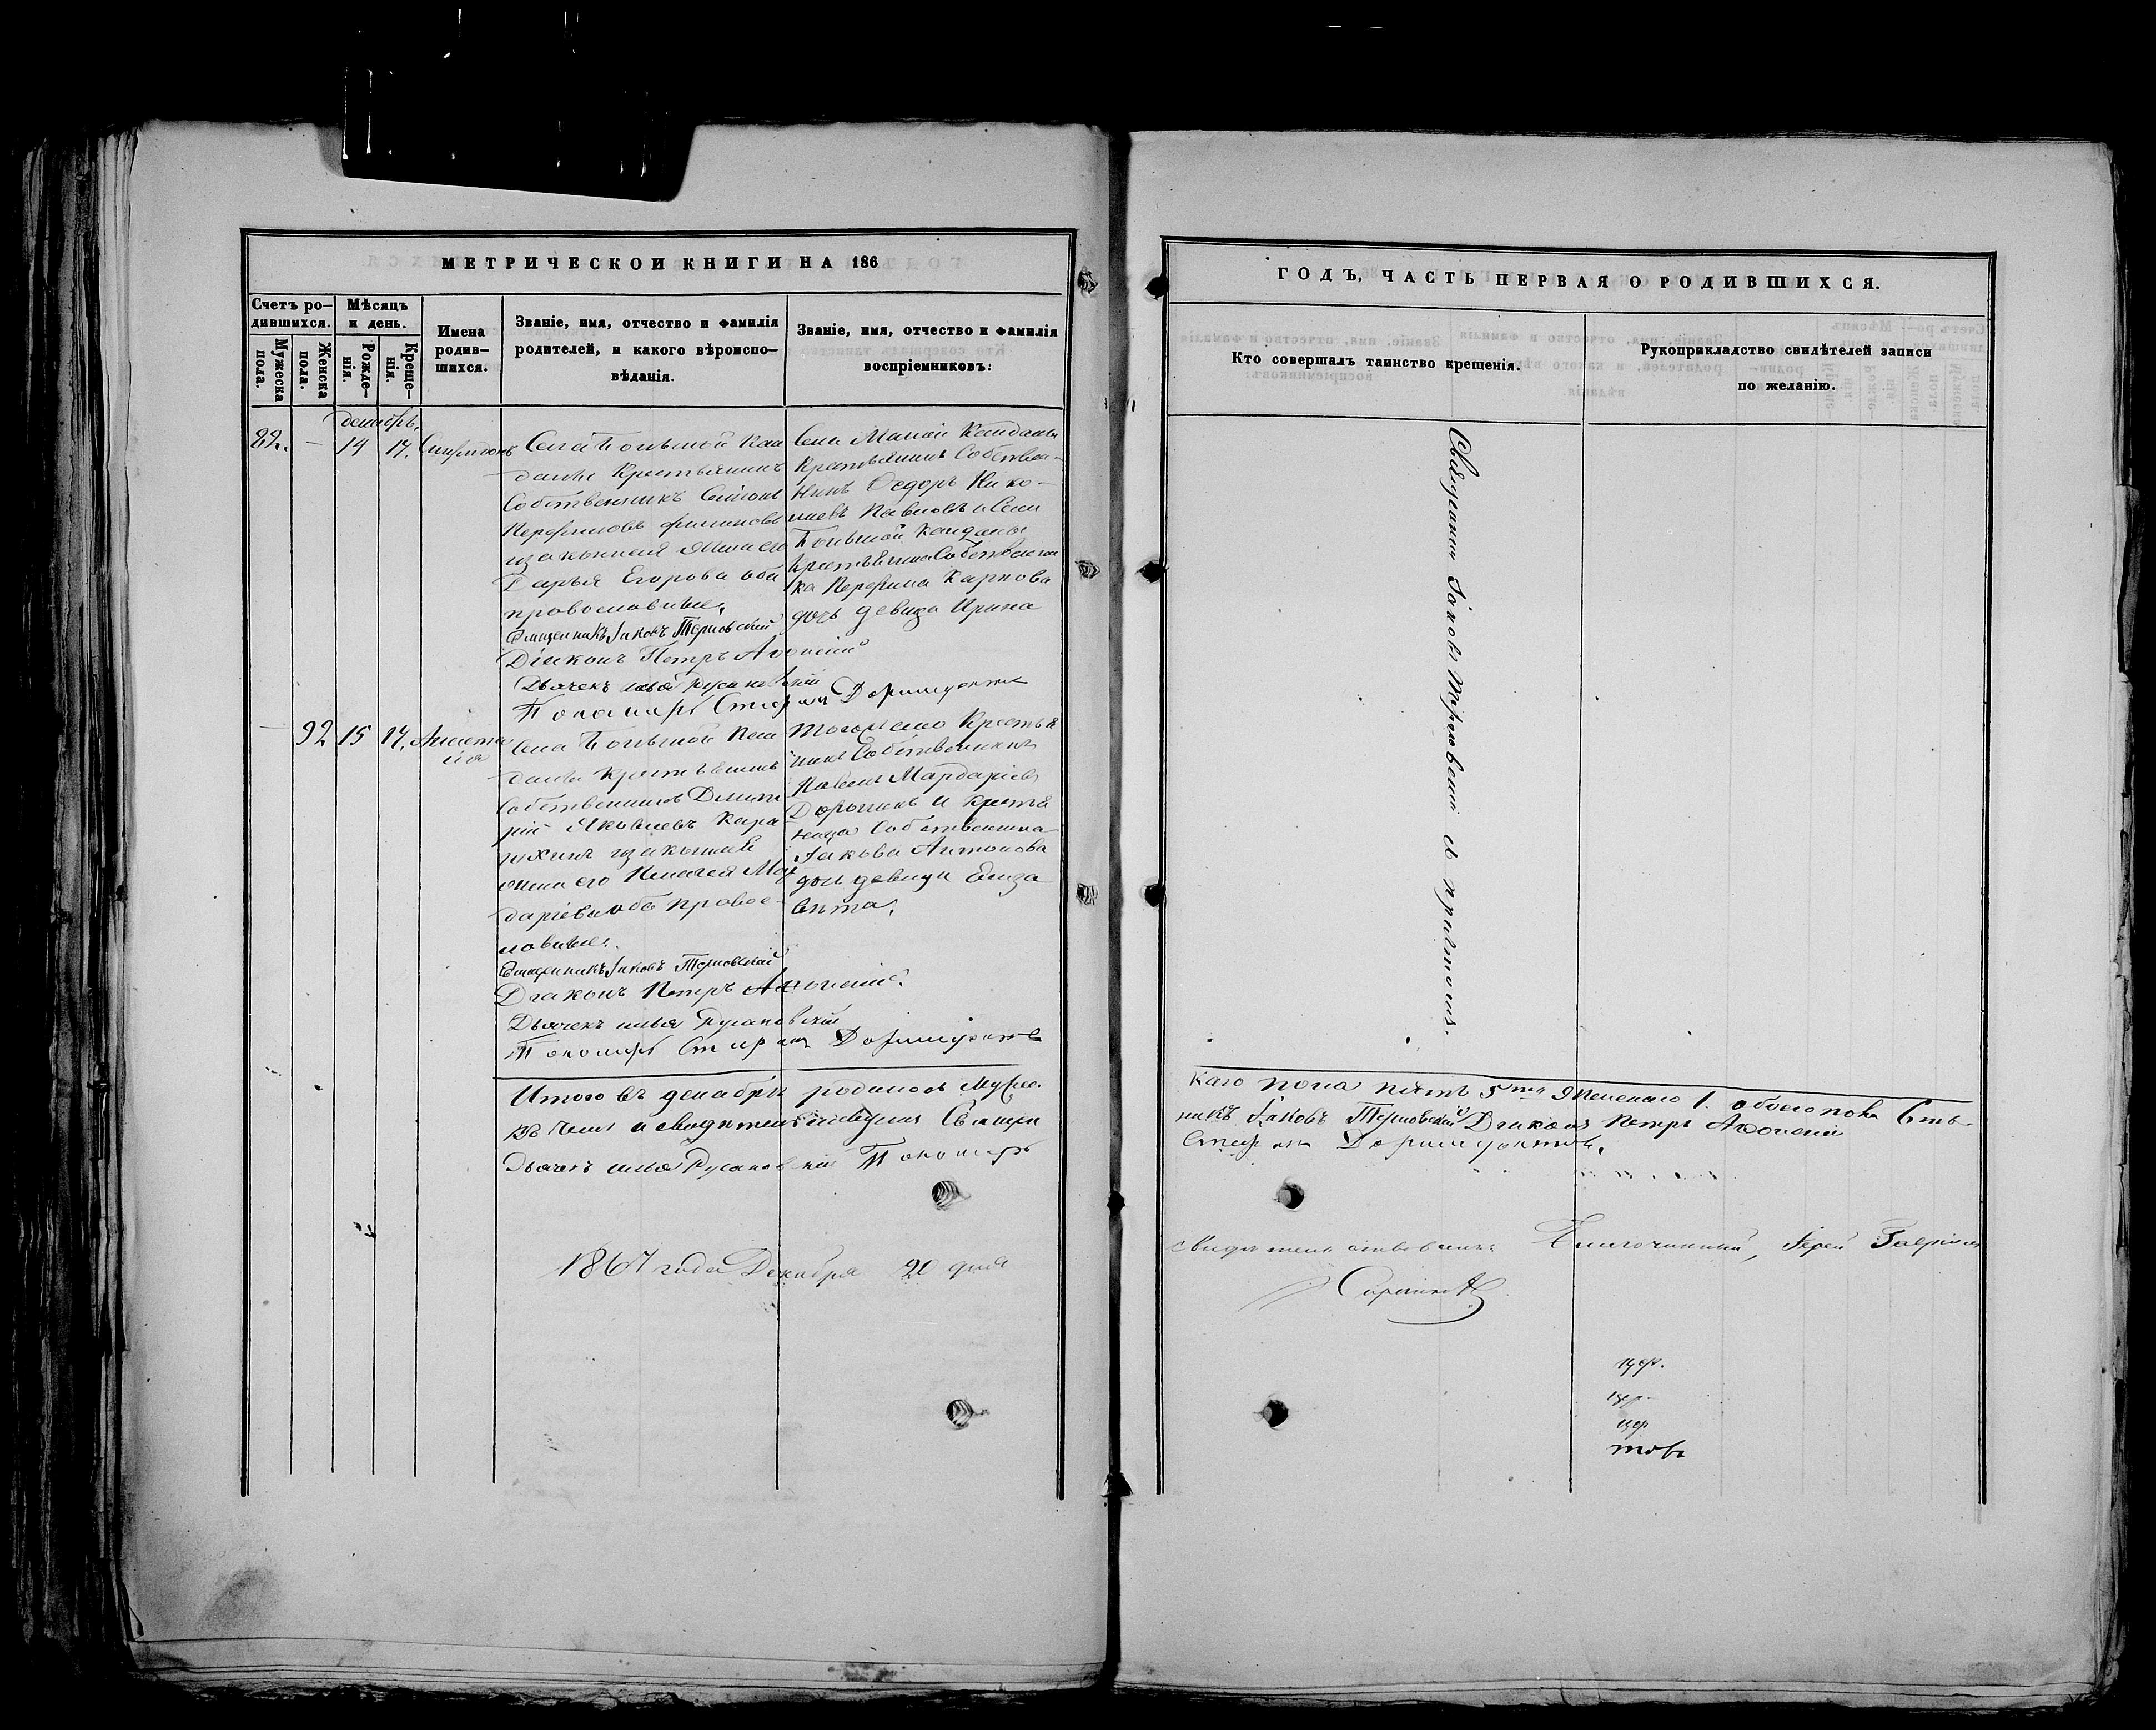 МЕТРИЧЕСКОЙ КНИГИ НА 186
Счетъ ро-
дившихся.
Мужеска
пола.
Женска
пола.
Мѣсяцъ
и день.
Рожде-
нія.
Креще-
нія.
Имена
родив-
шихся.
Званіе, имя, отчество и фамилія
родителей, и какого вѣроиспо-
вѣданія.
Званіе, имя, отчество и фамилія
воспріемниковъ:
декабрь,
14 17. Спиридонъ
Села Большой Кан
далы Крестьянинъ
Собственникъ
законная жена его
Дарья Егорова оба
православные.
Священникъ Іаковъ Терновскій
Діаконъ Петръ
Дьячекъ Илья Русановскій
Пономарь Стефанъ Доримедонтовъ
Села Малой Кандалы
Крестьянинъ Собствен-
никъ Ѳедоръ Нико-
лаевъ Павловъ и Села
Большой Кандалы
Крестьянина Собственни
ка Перфила Карпова
дочь девица Ирина
— 92 15 17. Аниста
сія
Села Большой Кан
далы крестьянинъ
Собственникъ Димит
рій Яковлевъ
законная
жена его Пелагея Мар
даріева оба правос-
лавные.
Священникъ Іаковъ Терновскій
Діаконъ Петръ
Дьячекъ Илья Русановскій
Пономарь Стефанъ Доримедонтовъ
тогоже села Крестья
нинъ Собственникъ
Павелъ Мардаріевъ
Дорогинъ и крестья
нина Собственника
Іакова Антонова
дочь девица Елиза
вета.
Итого въ декабрѣ родилось мужес-
Дьячекъ Илья Русановскій Пономарь
1867 года Декабря 20 дня
ГОДЪ, ЧАСТЬ ПЕРВАЯ О РОДИВШИХСЯ.
Кто совершалъ таинство крещенія.
Рукоприкладство свидѣтелей записи
по желанію.
Священникъ Іаковъ Терновскій съ причтомъ.
каго пола пять 5ть женскаго 1. обоего пола
никъ Іаковъ Терновскій Діаконъ Петръ
Стефанъ Доримедонтовъ.
свидетельствовалъ Благочинный, Іерей Гавріилъ